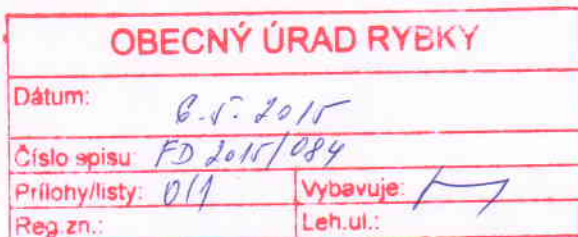 OBECNÝ ÚRAD RYBKY
Dátum: 6.5.2015
Číslo spisu: FD 2015/084
Prílohy/listy: 0/1 Vybavuje:
Reg.zn.: Leh.ul.: